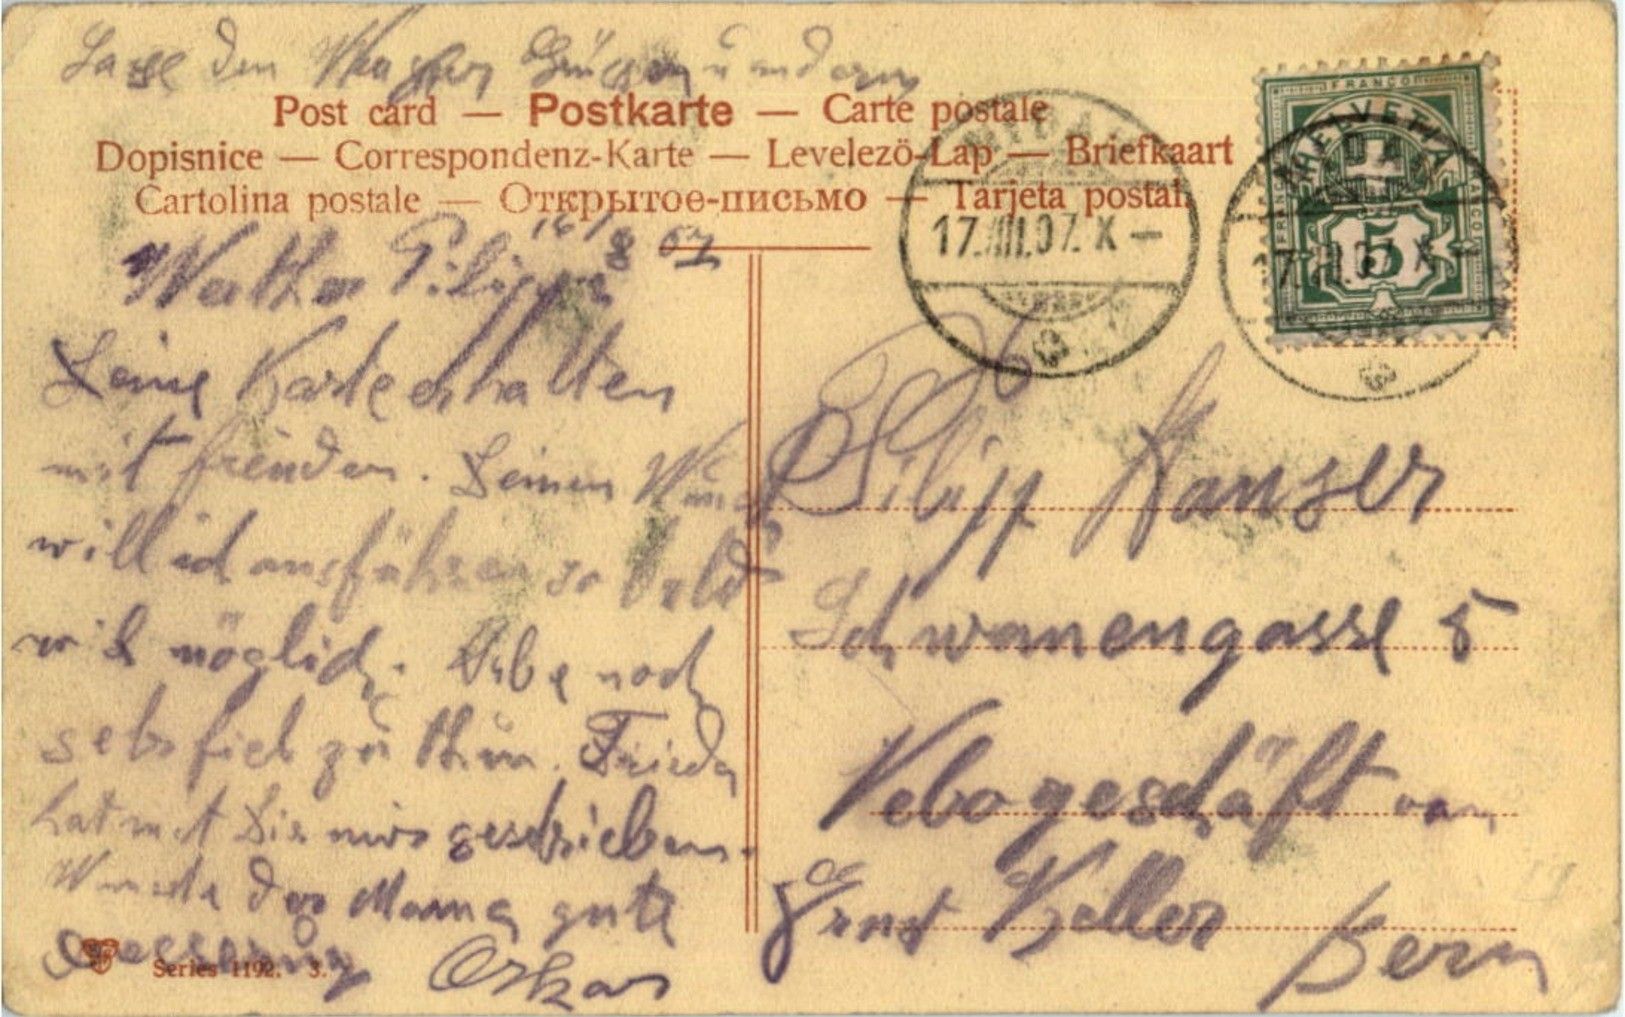 Post card — Postkarte — Carte postale
Dopisnice — Correspondenz-Karte — Levelezö-Lap — Briefkaart
Cartolina postale — Открытое-письмо — Tarjeta postal.
NIDAU
17.VIII.07. X —
FRANCO
HELVETIA
FRANCO
FRANCO
5
NIDAU
17.VIII.07 X —
16/8 07
Werther Pilipp
Deine Karte erhalten
mit freuden. Deinen Wunsch
will ich ausführen so bald
wie möglich. Habe noch
sehr fiel zu thun. Frieda
hat mit Dir mir geschrieben.
Wünsche der Mama gute
Besserung Oskar
Pilipp Hanser
Schwanengasse 5
Velogeschäft von
Ernst Keller Bern
Series 1192. 3.